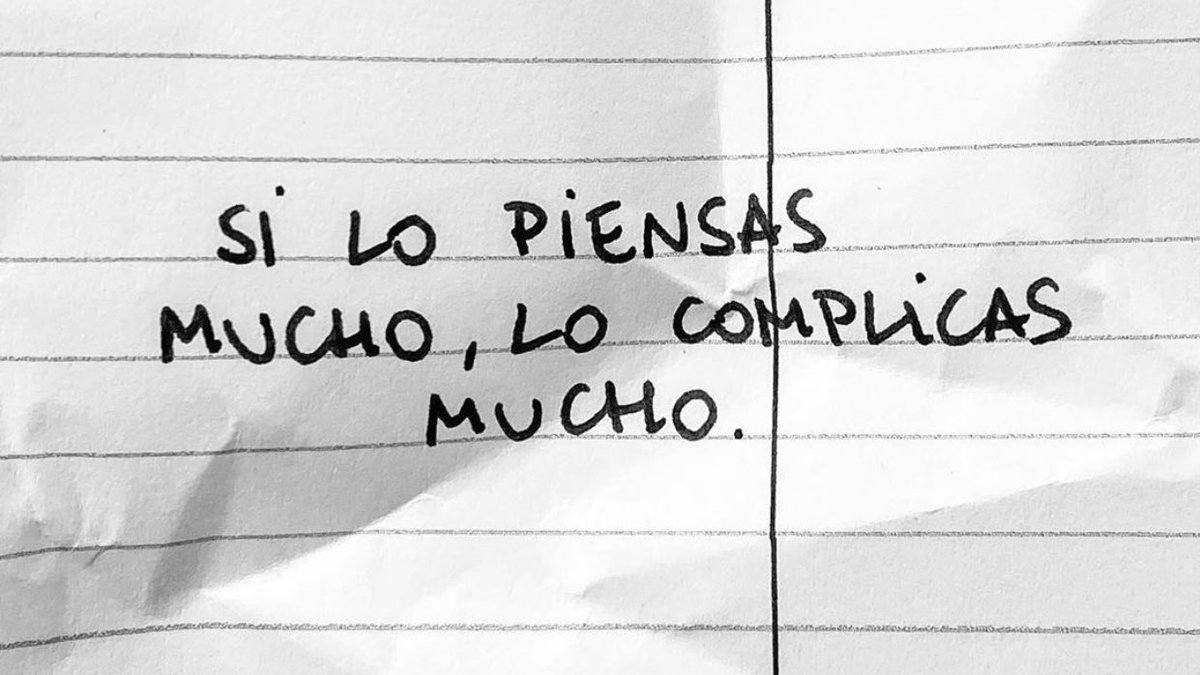 Si LO PiENSAS
MUCHO, LO COMPLiCAS
MUCHO.